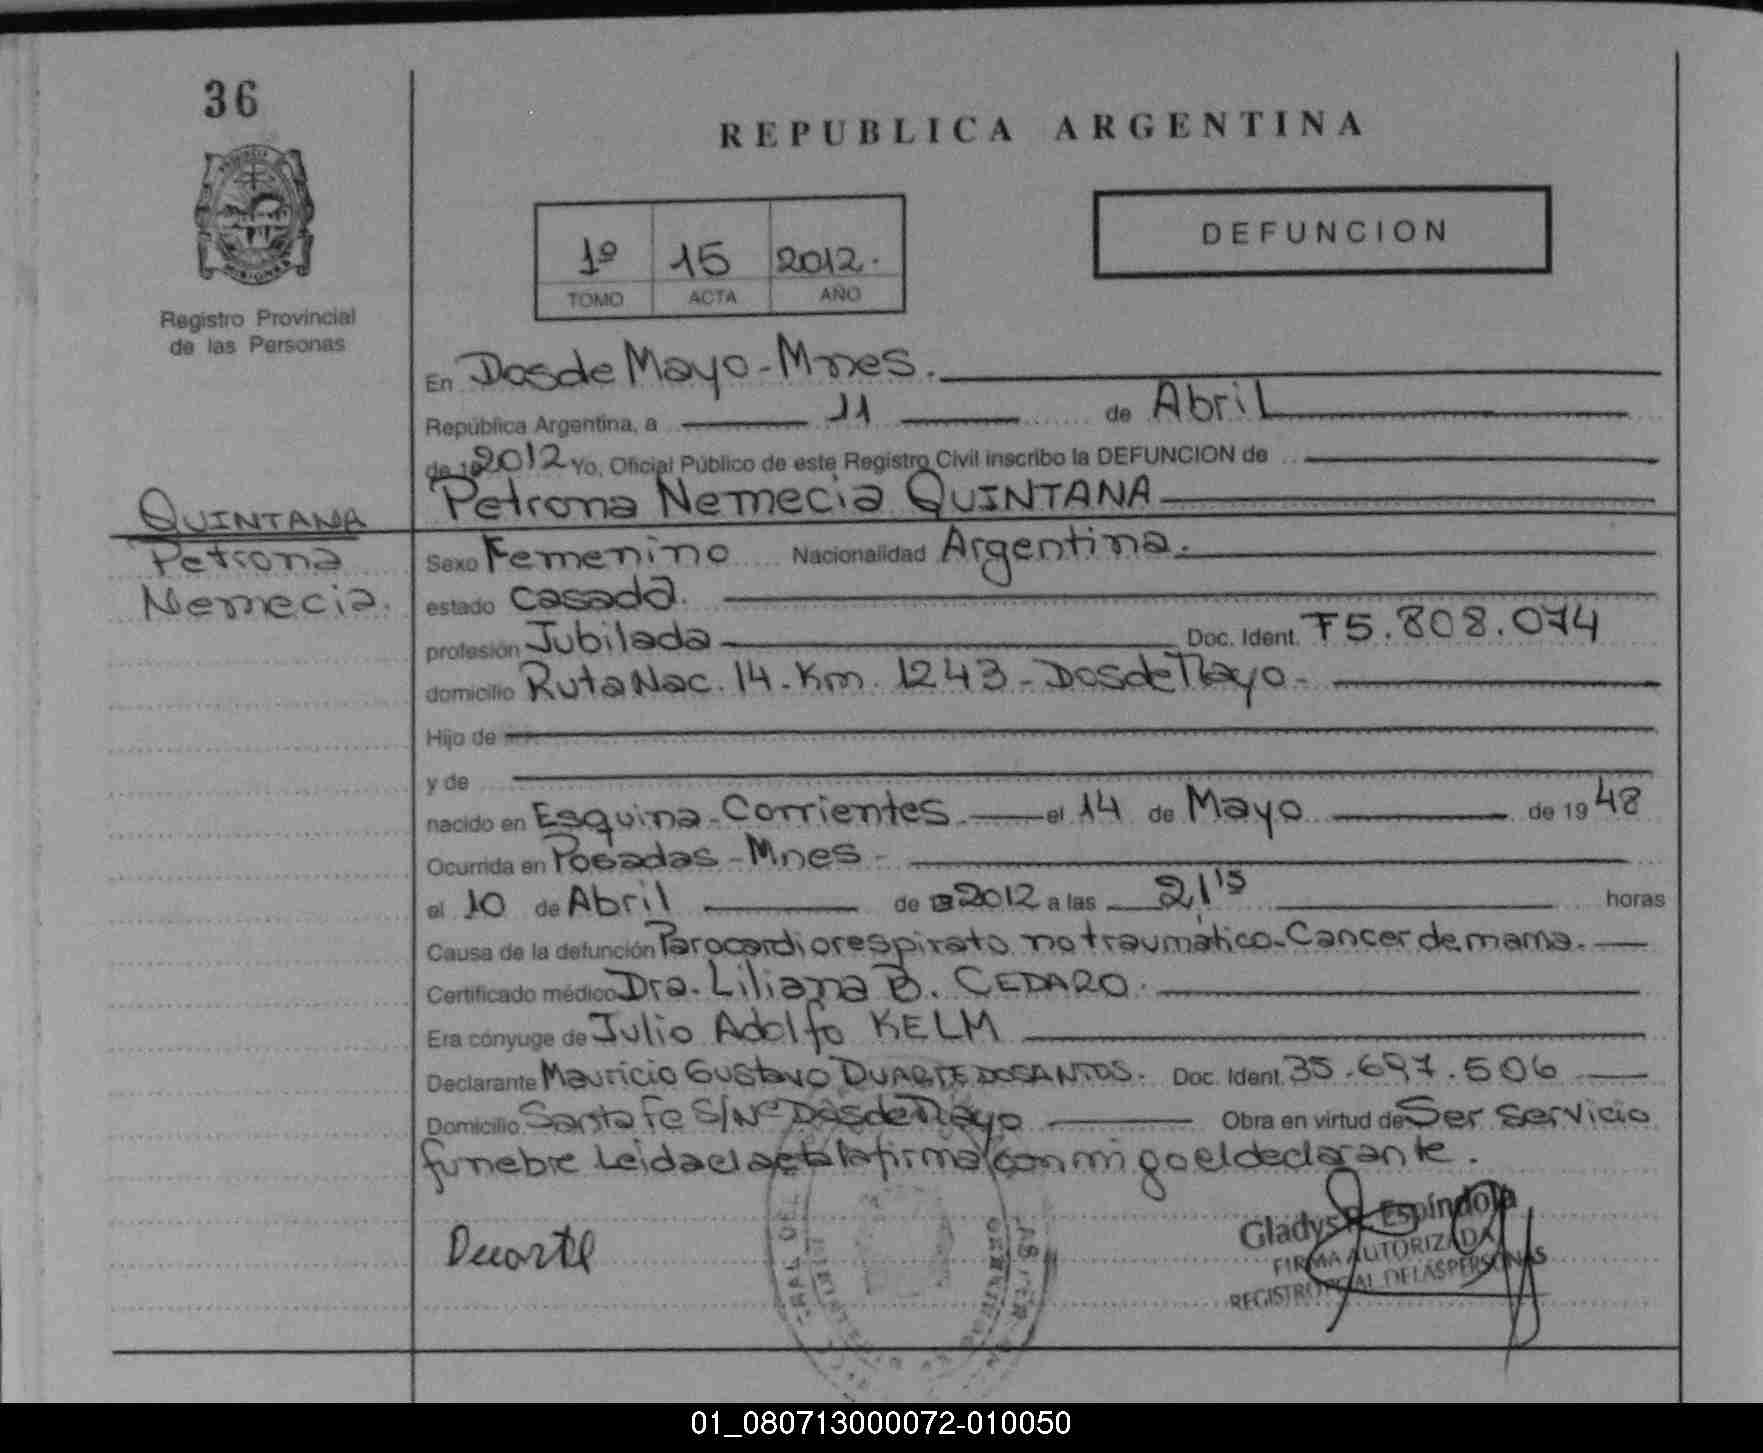 36
REPUBLICA ARGENTINA
MISIONES
Registro Provincial
de las Personas
1º 15 2012.
TOMO ACTA AÑO
DEFUNCION
En Dos de Mayo - Mnes.
República Argentina, a 11 de Abril
de 19 2012 Yo, Oficial Público de este Registro Civil inscribo la DEFUNCION de
Petrona Nemecia QUINTANA
QUINTANA
Petrona
Nemecia.
Sexo Femenino Nacionalidad Argentina.
estado casada.
profesión Jubilada Doc. Ident. F5.808.074
domicilio Ruta Nac. 14 - Km. 1243 - Dos de Mayo -
Hijo de
y de
nacido en Esquina - Corrientes el 14 de Mayo de 19 48
Ocurrida en Posadas - Mnes -
el 10 de Abril de 2012 a las 21 15 horas
Causa de la defunción Parocardiorespirato no traumático - Cancer de mama.
Certificado médico Dra. Liliana B. CEDARO.
Era cónyuge de Julio Adolfo KELM
Declarante Mauricio Gustavo DUARTE DOSANTOS. Doc. Ident. 35.697.506
Domicilio Santa Fe S/Nº Dos de Mayo Obra en virtud de Ser servicio
funebre Leida el acta la firma con migo el declarante.
Duarte
Gladys Espíndola
FIRMA AUTORIZADA
REGISTRO PCIAL DE LAS PERSONAS
01_080713000072-010050